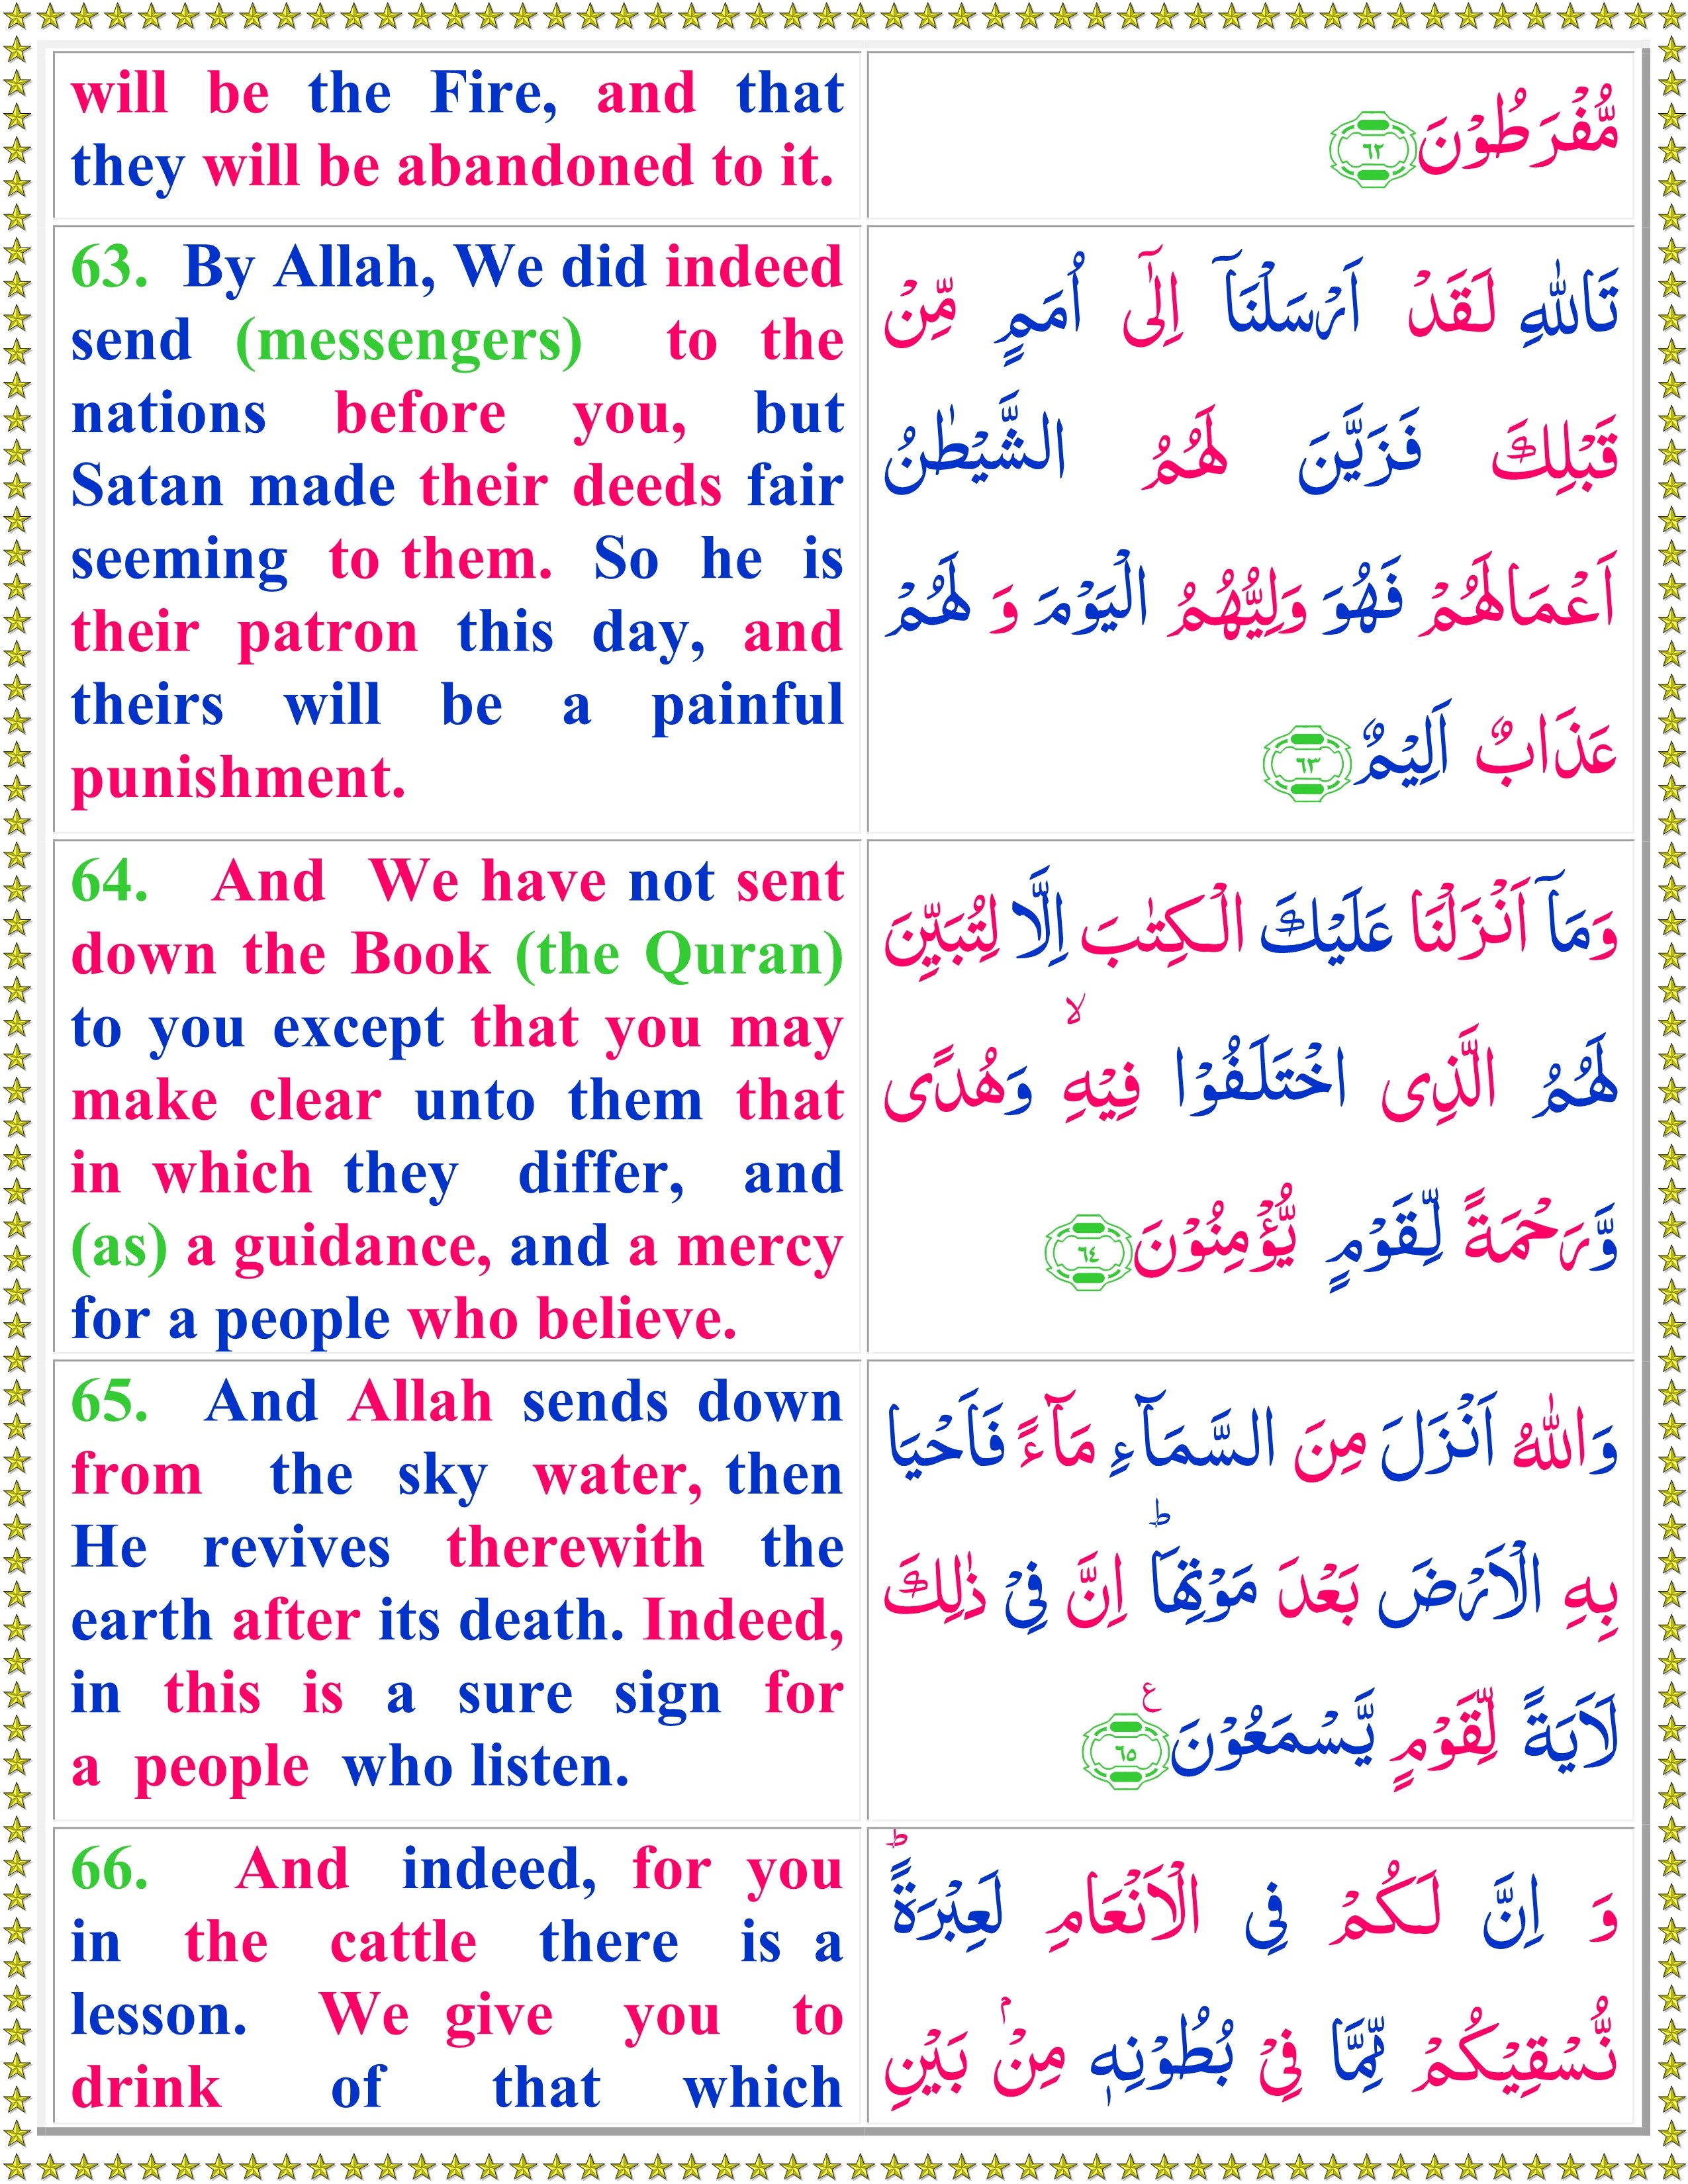 will be the Fire, and that
they will be abandoned to it.
مُّفْرَطُوْنَ ٦٢
63. By Allah, We did indeed
send (messengers) to the
nations before you, but
Satan made their deeds fair
seeming to them. So he is
their patron this day, and
theirs will be a painful
punishment.
تَاللّٰهِ لَقَدْ اَرْسَلْنَاۤ اِلٰٓى اُمَمٍ مِّنْ
قَبْلِكَ فَزَيَّنَ لَهُمُ الشَّيْطٰنُ
اَعْمَالَهُمْ فَهُوَ وَلِيُّهُمُ الْيَوْمَ وَ لَهُمْ
عَذَابٌ اَلِيْمٌ ٦٣
64. And We have not sent
down the Book (the Quran)
to you except that you may
make clear unto them that
in which they differ, and
(as) a guidance, and a mercy
for a people who believe.
وَمَاۤ اَنْزَلْنَا عَلَيْكَ الْكِتٰبَ اِلَّا لِتُبَيِّنَ
لَهُمُ الَّذِى اخْتَلَفُوْا فِيْهِۙ وَهُدًى
وَّرَحْمَةً لِّقَوْمٍ يُّؤْمِنُوْنَ ٦٤
65. And Allah sends down
from the sky water, then
He revives therewith the
earth after its death. Indeed,
in this is a sure sign for
a people who listen.
وَاللّٰهُ اَنْزَلَ مِنَ السَّمَآءِ مَآءً فَاَحْيَا
بِهِ الْاَرْضَ بَعْدَ مَوْتِهَاؕ اِنَّ فِىْ ذٰلِكَ
لَاَيَةً لِّقَوْمٍ يَّسْمَعُوْنَ ع ٦٥
66. And indeed, for you
in the cattle there is a
lesson. We give you to
drink of that which
وَ اِنَّ لَكُمْ فِى الْاَنْعَامِ لَعِبْرَةًؕ
نُّسْقِيْكُمْ مِّمَّا فِىْ بُطُوْنِهٖ مِنْۢ بَيْنِ